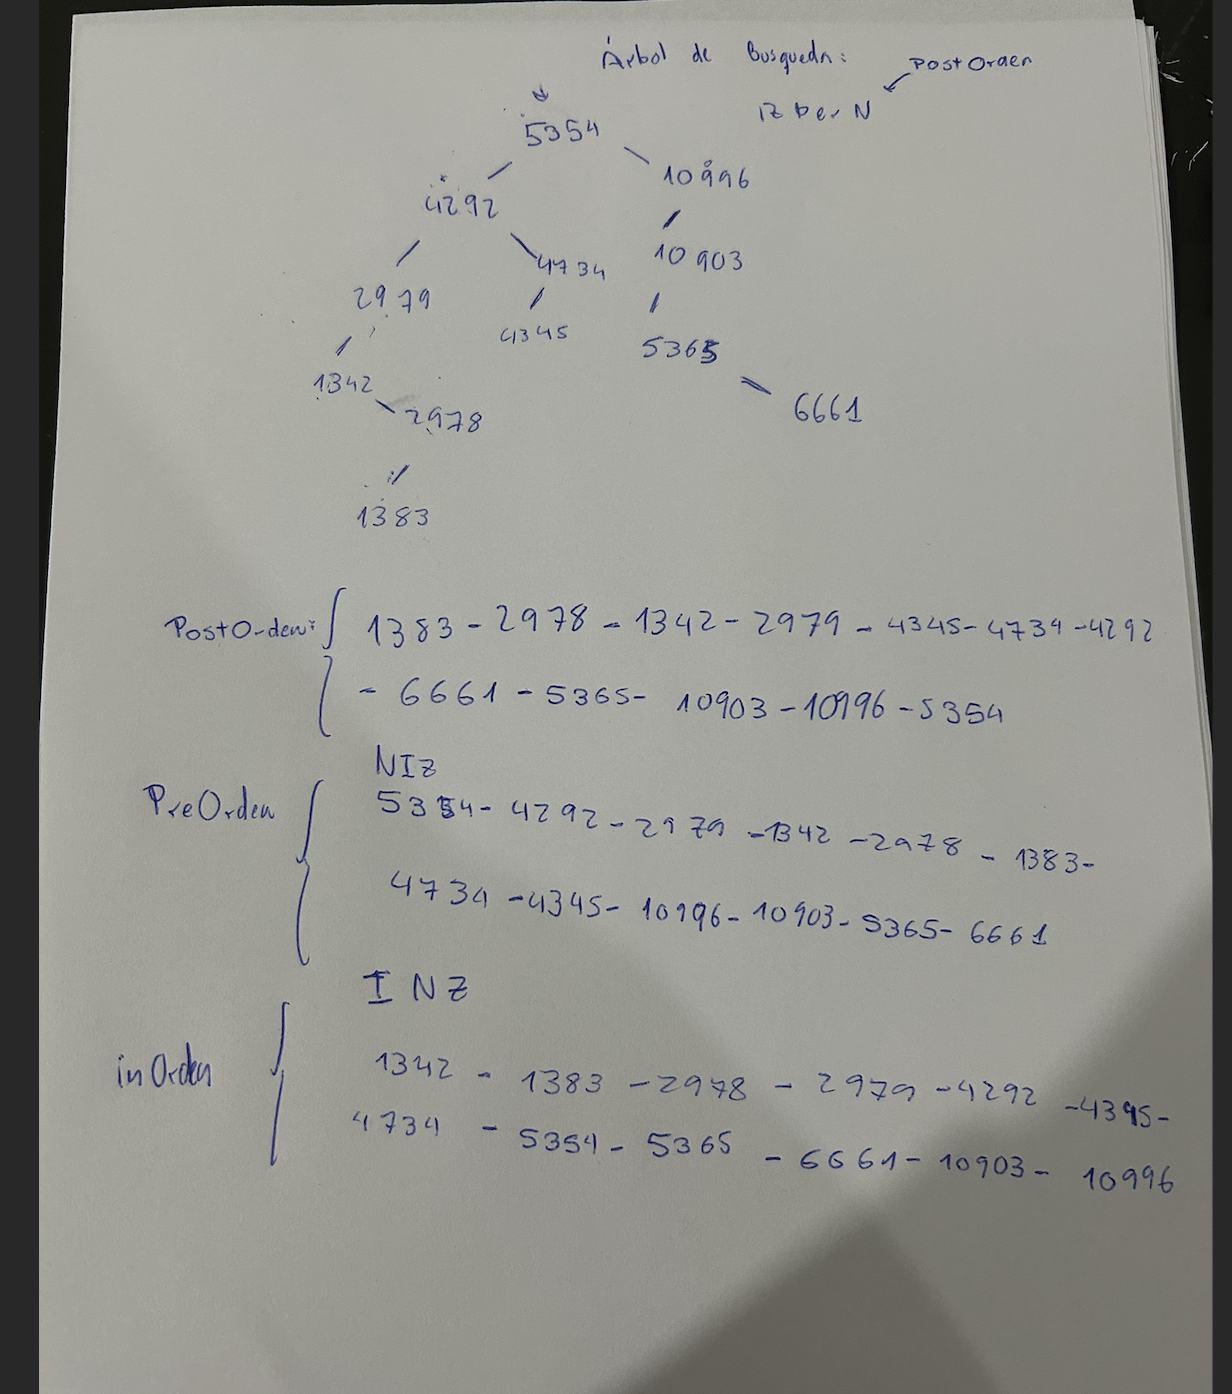 Árbol de Busqueda:
PostOrden
IZ Der N
5354
10996
4292
4734
10903
2979
4345
5365
1342
2978
6661
1383
PostOrden: 1383 - 2978 - 1342 - 2979 - 4345 - 4734 - 4292
- 6661 - 5365 - 10903 - 10996 - 5354
NIZ
PreOrden 5354 - 4292 - 2979 - 1342 - 2978 - 1383 -
4734 - 4345 - 10996 - 10903 - 5365 - 6661
INZ
inOrden 1342 - 1383 - 2978 - 2979 - 4292 - 4345 -
4734 - 5354 - 5365 - 6661 - 10903 - 10996